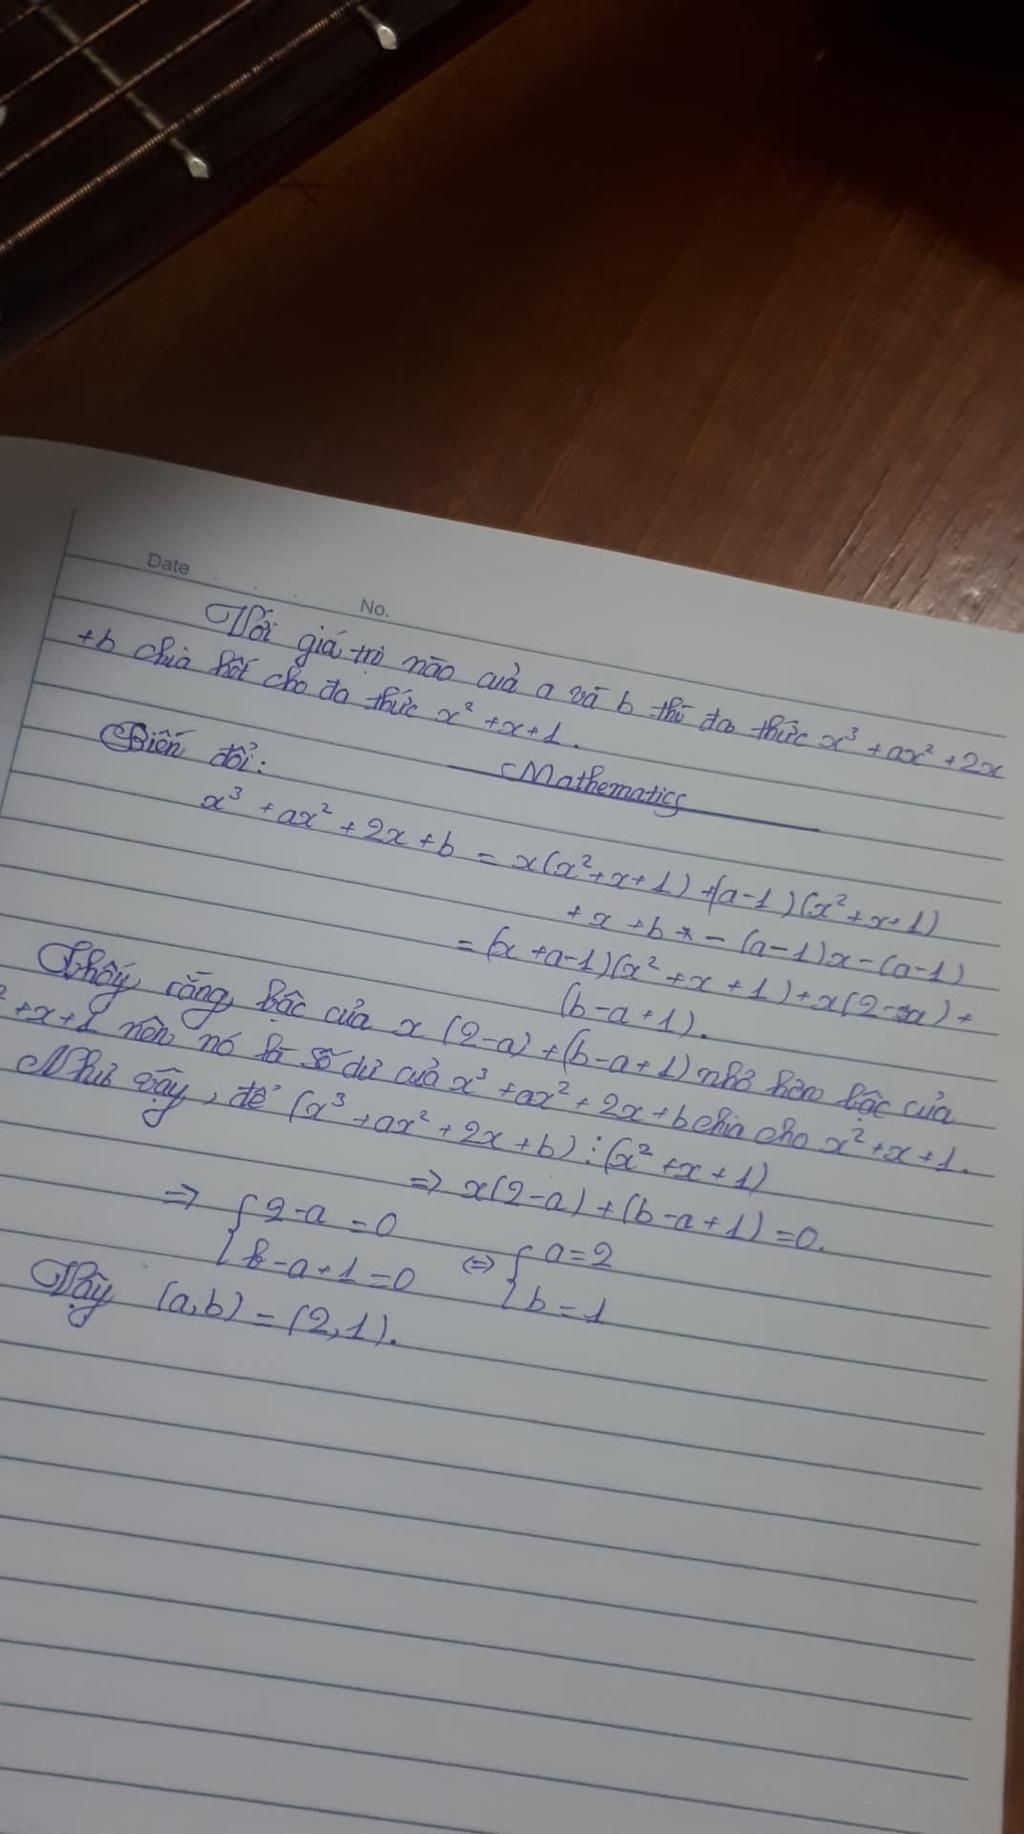 Date
No.
Với giá trị nào của a và b thì đa thức x³ + ax² + 2x
+b chia hết cho đa thức x² + x + 1.
Mathematics
Biến đổi:
x³ + ax² + 2x + b = x(x² + x + 1) + (a-1)(x² + x + 1)
+ x + b - (a-1)x - (a-1)
= (x + a-1)(x² + x + 1) + x(2-a) +
(b-a+1).
Thấy rằng bậc của x(2-a) + (b-a+1) nhỏ hơn bậc của
² + x + 1 nên nó là số dư của x³ + ax² + 2x + b chia cho x² + x + 1.
Như vậy, để (x³ + ax² + 2x + b) ⋮ (x² + x + 1)
=> x(2-a) + (b-a+1) = 0.
=> { 2-a = 0 <=> { a = 2
{ b-a+1 = 0 { b = 1
Vậy (a,b) = (2,1).